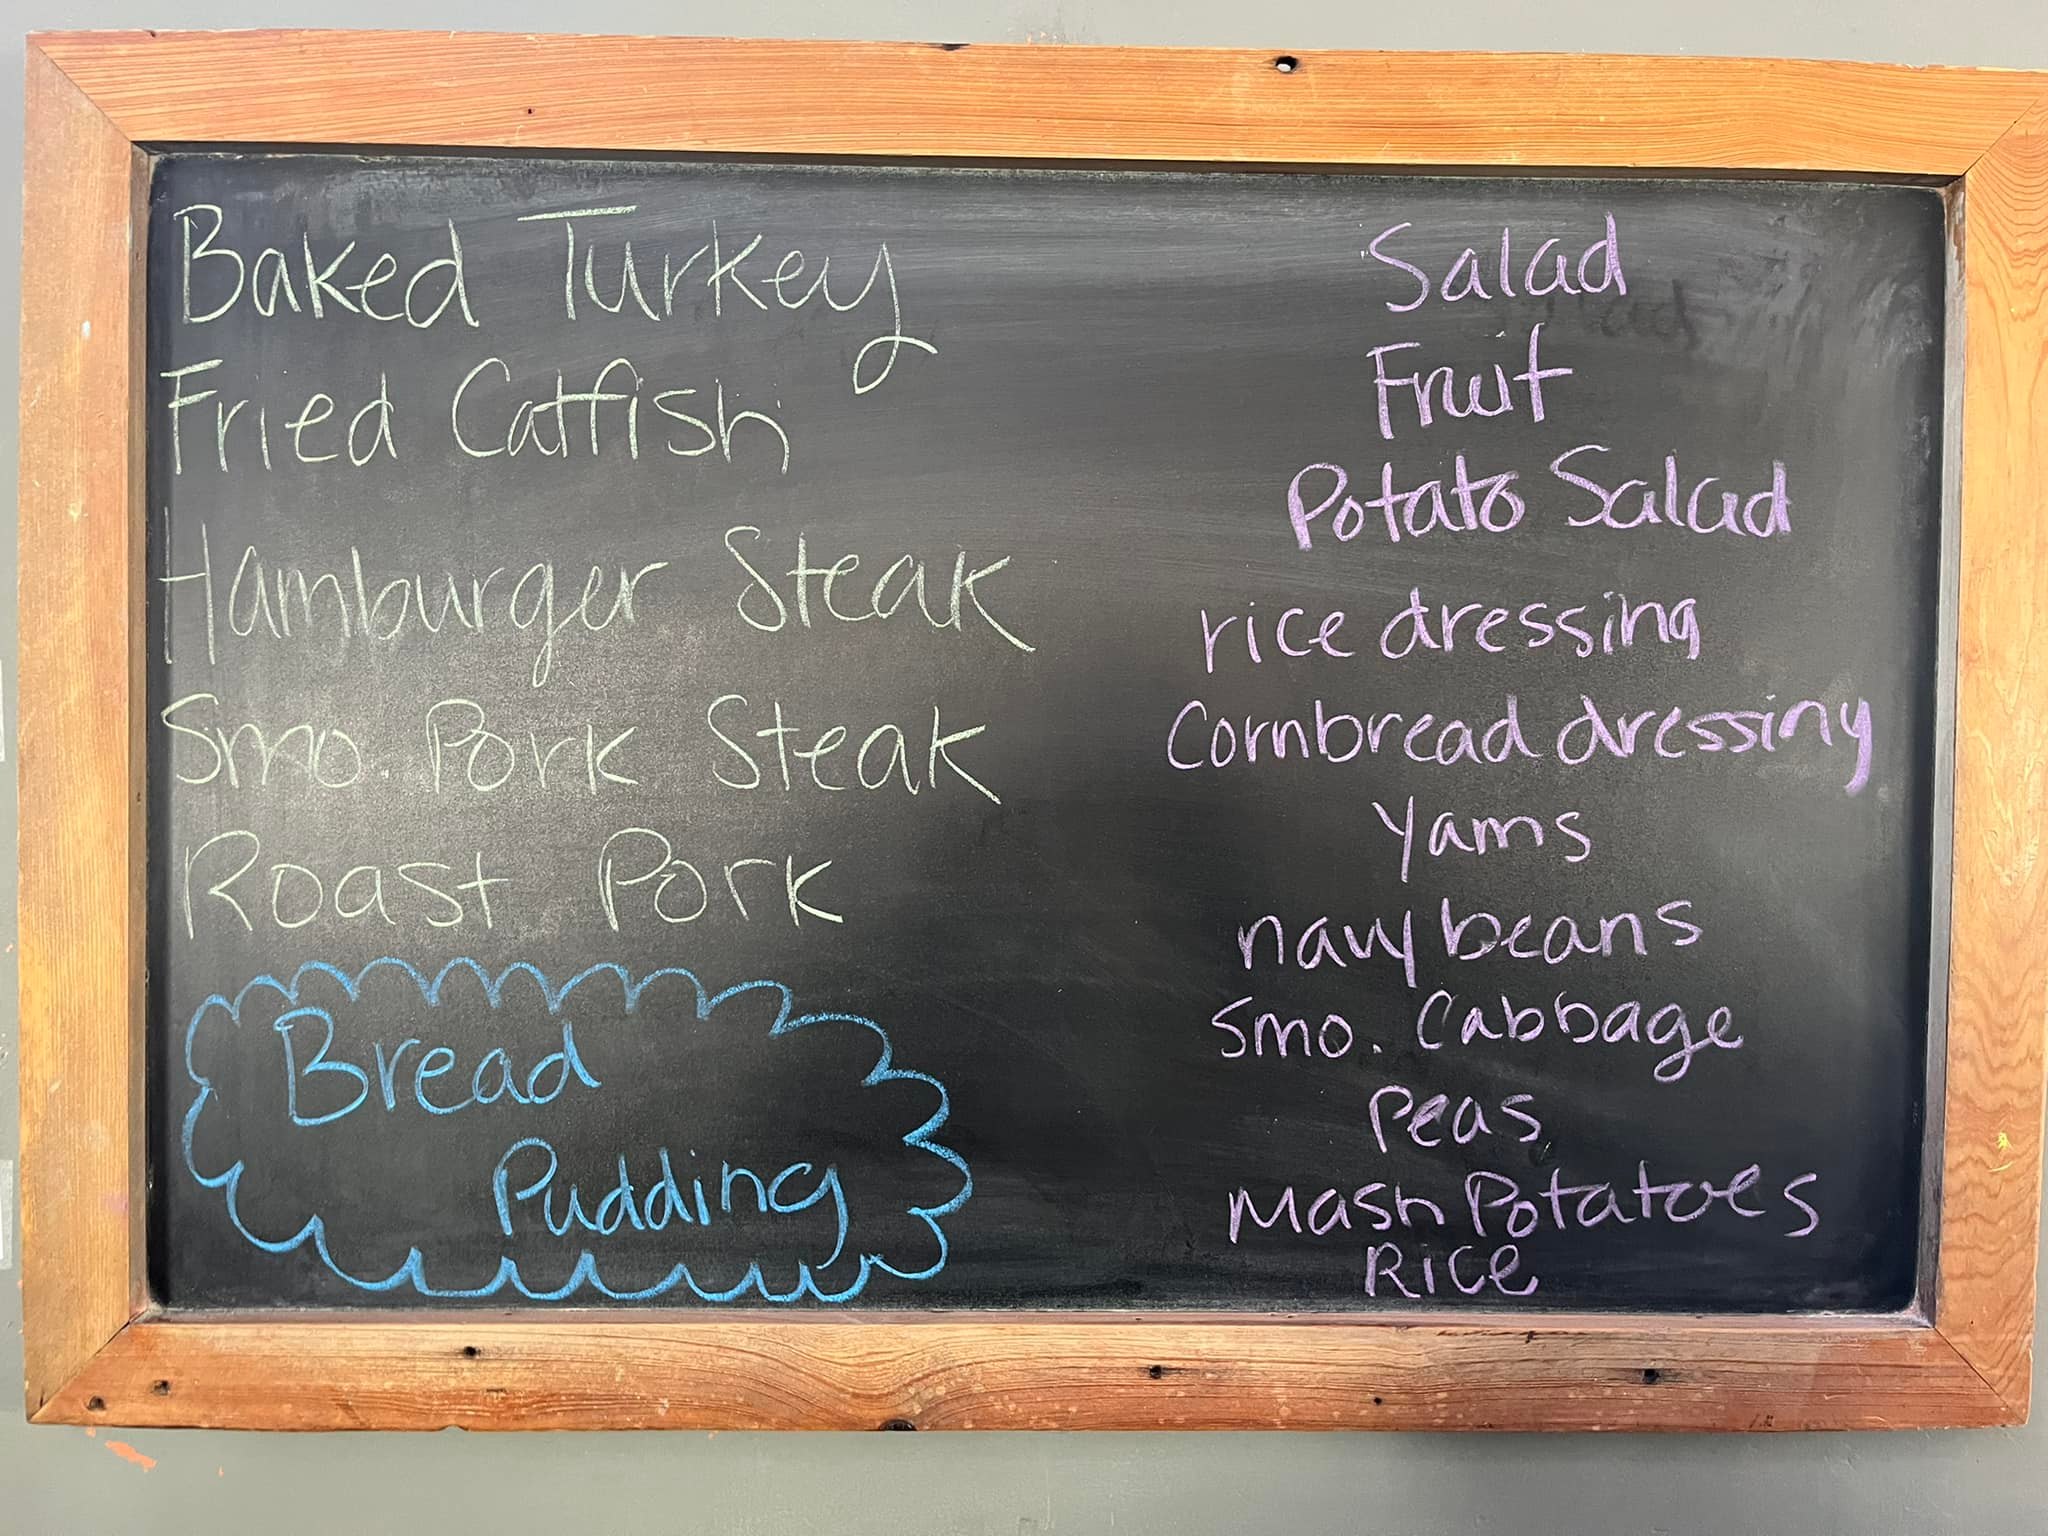 Baked Turkey
Fried Catfish
Hamburger Steak
Smo. Pork Steak
Roast Pork
Bread
Pudding
Salad
Fruit
Potato Salad
rice dressing
Cornbread dressing
Yams
navy beans
Smo. Cabbage
Peas
Mash Potatoes
Rice